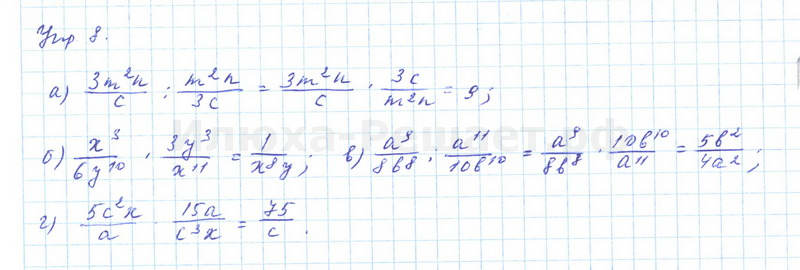 Упр 8.
а) 3m²n/c : m²n/3c = 3m²n/c · 3c/m²n = 9;
б) x³/6y¹⁰ · 3y³/x¹¹ = 1/x⁸y; в) a⁹/8b⁸ : a¹¹/10b¹⁰ = a⁹/8b⁸ · 10b¹⁰/a¹¹ = 5b²/4a²;
г) 5c²x/a · 15a/c³x = 75/c.